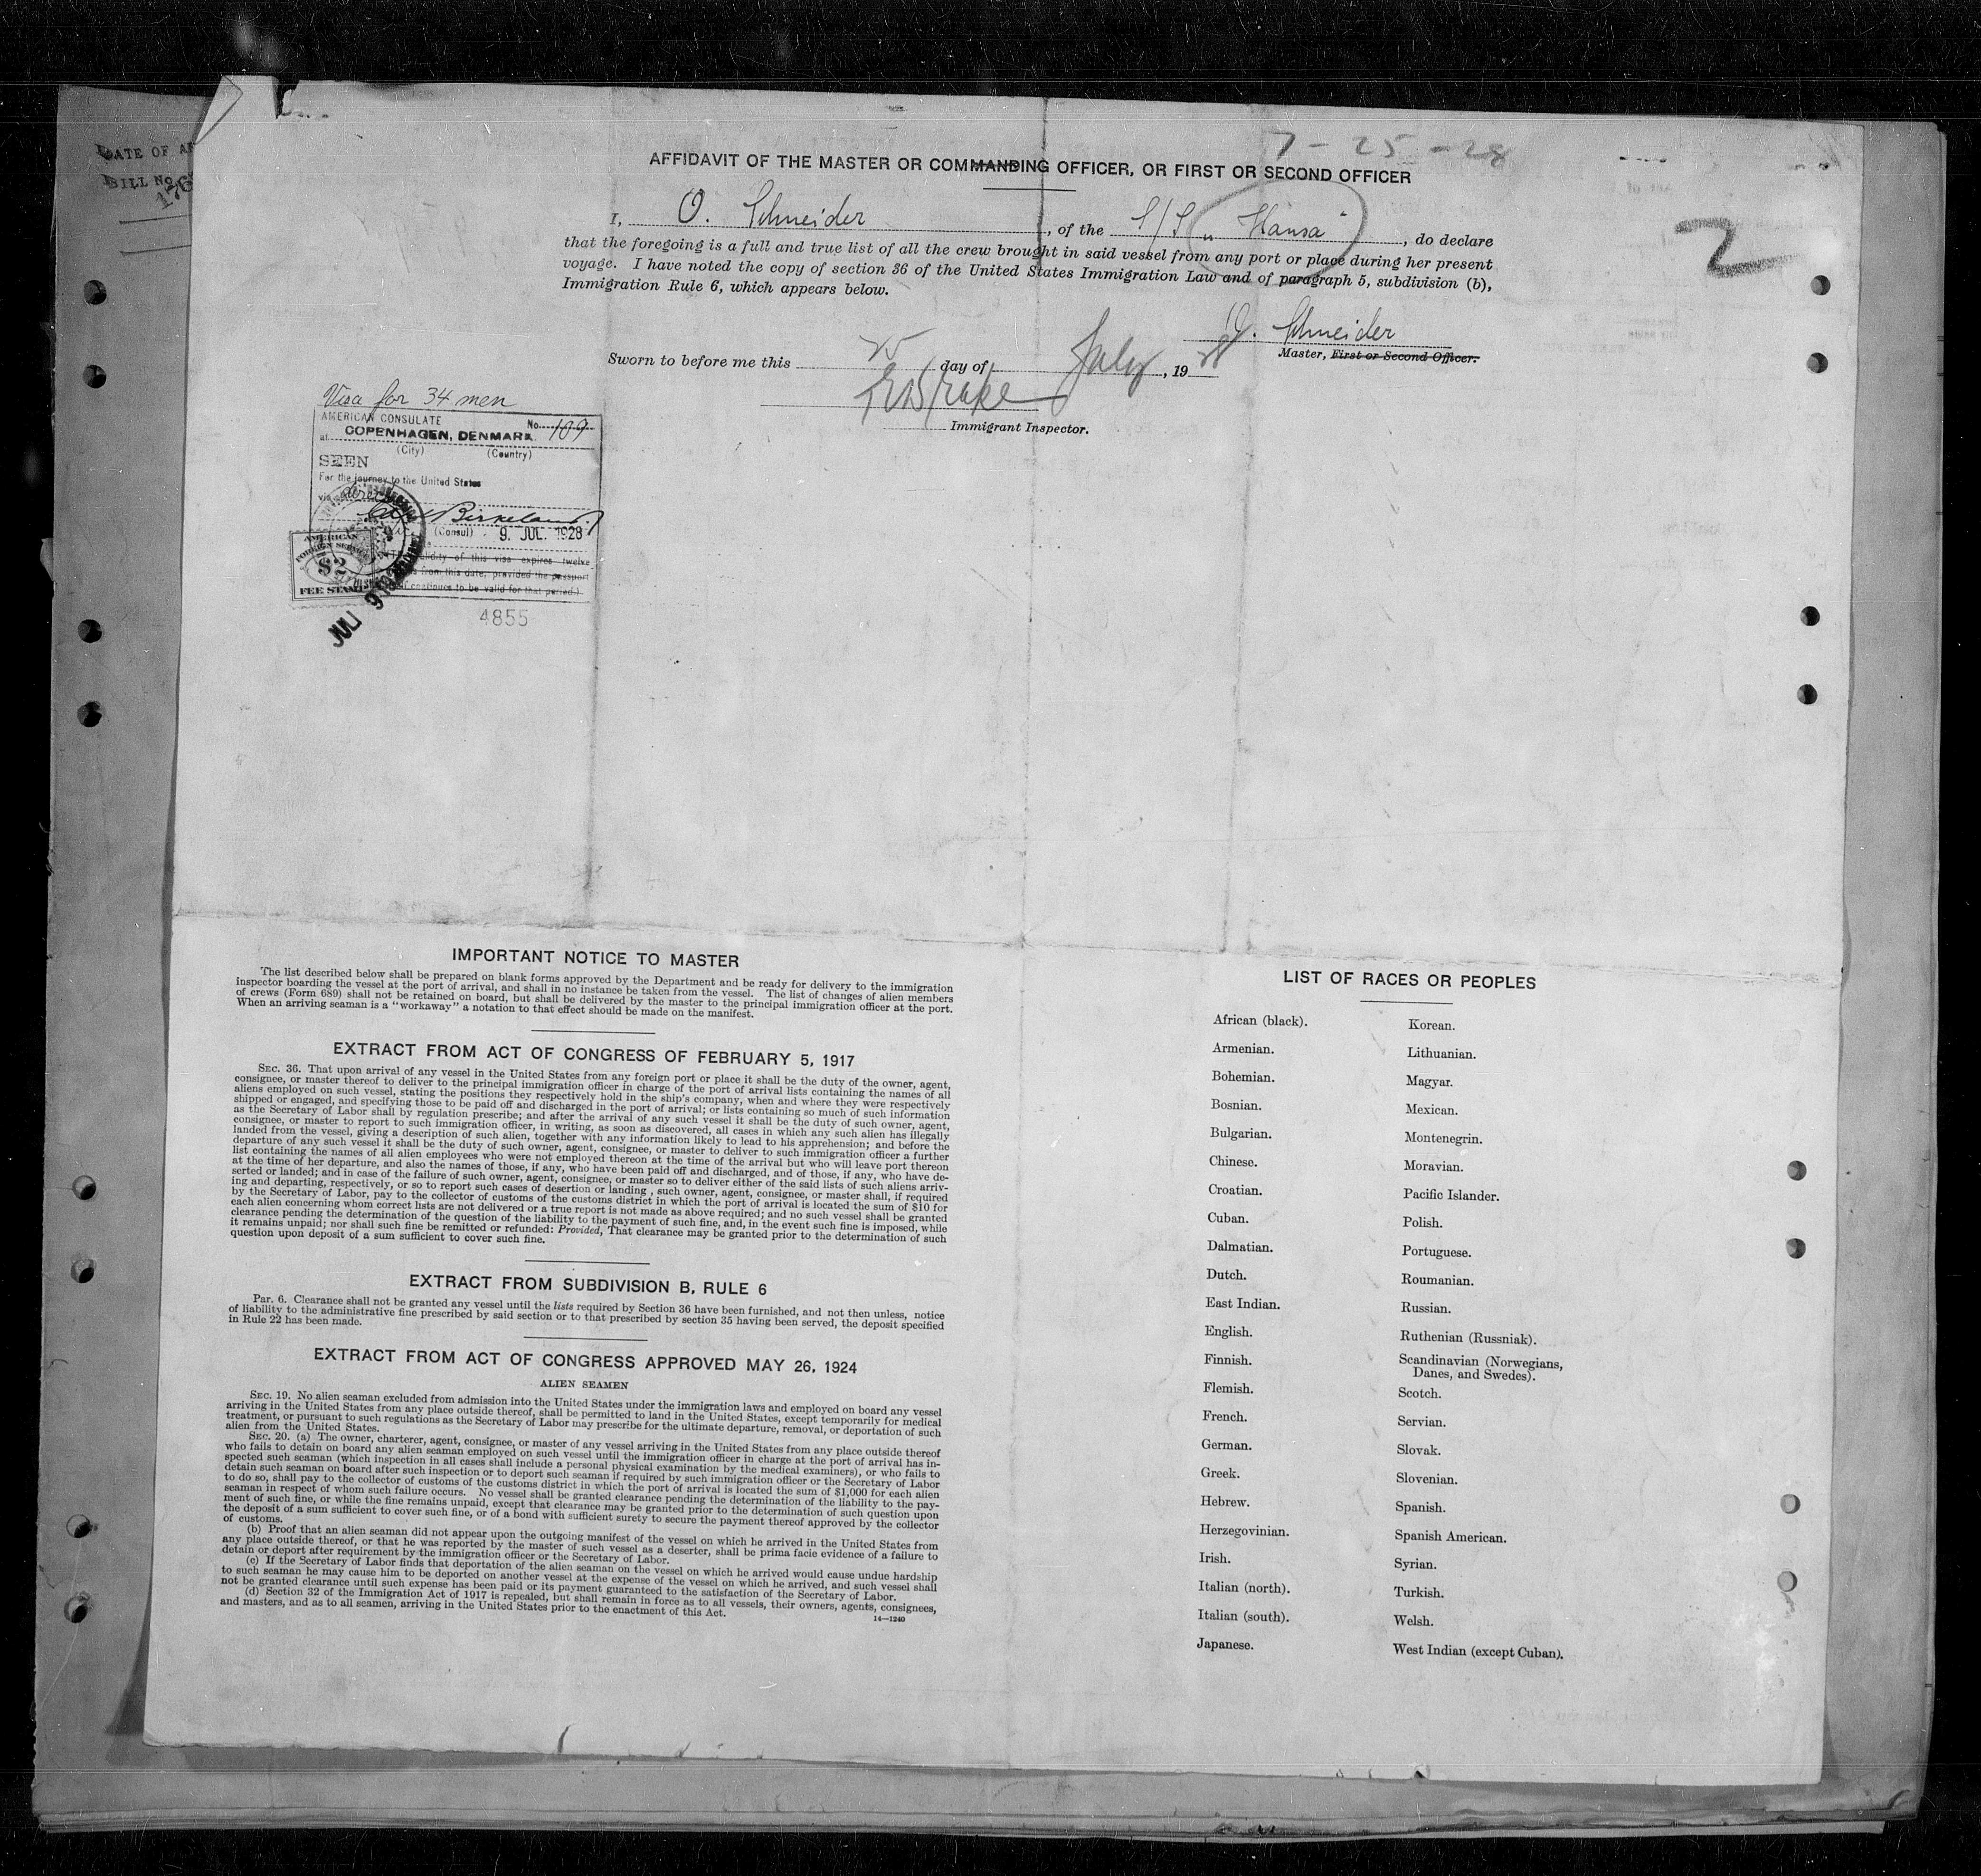 DATE OF AR
BILL No.
176
7-25-28
2
AFFIDAVIT OF THE MASTER OR COMMANDING OFFICER, OR FIRST OR SECOND OFFICER
I, O. Schneider, of the S/S „Hansa“, do declare
that the foregoing is a full and true list of all the crew brought in said vessel from any port or place during her present
voyage. I have noted the copy of section 36 of the United States Immigration Law and of paragraph 5, subdivision (b),
Immigration Rule 6, which appears below.
O. Schneider
Master, First or Second Officer.
Sworn to before me this 25 day of July, 1928
Immigrant Inspector.
Visa for 34 men
AMERICAN CONSULATE
at COPENHAGEN, DENMARK No. 109
(City) (Country)
SEEN
For the journey to the United States
via
Birkeland
(Consul) 9. JUL. 1928
validity of this visa expires twelve
from this date, provided the passport
continues to be valid for that period.)
AMERICAN
FOREIGN SERVICE
$2
FEE STAMP
JUL 9 1928
4855
IMPORTANT NOTICE TO MASTER
The list described below shall be prepared on blank forms approved by the Department and be ready for delivery to the immigration
inspector boarding the vessel at the port of arrival, and shall in no instance be taken from the vessel. The list of changes of alien members
of crews (Form 689) shall not be retained on board, but shall be delivered by the master to the principal immigration officer at the port.
When an arriving seaman is a "workaway" a notation to that effect should be made on the manifest.
EXTRACT FROM ACT OF CONGRESS OF FEBRUARY 5, 1917
SEC. 36. That upon arrival of any vessel in the United States from any foreign port or place it shall be the duty of the owner, agent,
consignee, or master thereof to deliver to the principal immigration officer in charge of the port of arrival lists containing the names of all
aliens employed on such vessel, stating the positions they respectively hold in the ship's company, when and where they were respectively
shipped or engaged, and specifying those to be paid off and discharged in the port of arrival; or lists containing so much of such information
as the Secretary of Labor shall by regulation prescribe; and after the arrival of any such vessel it shall be the duty of such owner, agent,
consignee, or master to report to such immigration officer, in writing, as soon as discovered, all cases in which any such alien has illegally
landed from the vessel, giving a description of such alien, together with any information likely to lead to his apprehension; and before the
departure of any such vessel it shall be the duty of such owner, agent, consignee, or master to deliver to such immigration officer a further
list containing the names of all alien employees who were not employed thereon at the time of the arrival but who will leave port thereon
at the time of her departure, and also the names of those, if any, who have been paid off and discharged, and of those, if any, who have de-
serted or landed; and in case of the failure of such owner, agent, consignee, or master so to deliver either of the said lists of such aliens arriv-
ing and departing, respectively, or so to report such cases of desertion or landing, such owner, agent, consignee, or master shall, if required
by the Secretary of Labor, pay to the collector of customs of the customs district in which the port of arrival is located the sum of $10 for
each alien concerning whom correct lists are not delivered or a true report is not made as above required; and no such vessel shall be granted
clearance pending the determination of the question of the liability to the payment of such fine, and, in the event such fine is imposed, while
it remains unpaid; nor shall such fine be remitted or refunded: Provided, That clearance may be granted prior to the determination of such
question upon deposit of a sum sufficient to cover such fine.
EXTRACT FROM SUBDIVISION B, RULE 6
Par. 6. Clearance shall not be granted any vessel until the lists required by Section 36 have been furnished, and not then unless, notice
of liability to the administrative fine prescribed by said section or to that prescribed by section 35 having been served, the deposit specified
in Rule 22 has been made.
EXTRACT FROM ACT OF CONGRESS APPROVED MAY 26, 1924
ALIEN SEAMEN
SEC. 19. No alien seaman excluded from admission into the United States under the immigration laws and employed on board any vessel
arriving in the United States from any place outside thereof, shall be permitted to land in the United States, except temporarily for medical
treatment, or pursuant to such regulations as the Secretary of Labor may prescribe for the ultimate departure, removal, or deportation of such
alien from the United States.
SEC. 20. (a) The owner, charterer, agent, consignee, or master of any vessel arriving in the United States from any place outside thereof
who fails to detain on board any alien seaman employed on such vessel until the immigration officer in charge at the port of arrival has in-
spected such seaman (which inspection in all cases shall include a personal physical examination by the medical examiners), or who fails to
detain such seaman on board after such inspection or to deport such seaman if required by such immigration officer or the Secretary of Labor
to do so, shall pay to the collector of customs of the customs district in which the port of arrival is located the sum of $1,000 for each alien
seaman in respect of whom such failure occurs. No vessel shall be granted clearance pending the determination of the liability to the pay-
ment of such fine, or while the fine remains unpaid, except that clearance may be granted prior to the determination of such question upon
the deposit of a sum sufficient to cover such fine, or of a bond with sufficient surety to secure the payment thereof approved by the collector
of customs.
(b) Proof that an alien seaman did not appear upon the outgoing manifest of the vessel on which he arrived in the United States from
any place outside thereof, or that he was reported by the master of such vessel as a deserter, shall be prima facie evidence of a failure to
detain or deport after requirement by the immigration officer or the Secretary of Labor.
(c) If the Secretary of Labor finds that deportation of the alien seaman on the vessel on which he arrived would cause undue hardship
to such seaman he may cause him to be deported on another vessel at the expense of the vessel on which he arrived, and such vessel shall
not be granted clearance until such expense has been paid or its payment guaranteed to the satisfaction of the Secretary of Labor.
(d) Section 32 of the Immigration Act of 1917 is repealed, but shall remain in force as to all vessels, their owners, agents, consignees,
and masters, and as to all seamen, arriving in the United States prior to the enactment of this Act.
14—1240
LIST OF RACES OR PEOPLES
African (black).
Armenian.
Bohemian.
Bosnian.
Bulgarian.
Chinese.
Croatian.
Cuban.
Dalmatian.
Dutch.
East Indian.
English.
Finnish.
Flemish.
French.
German.
Greek.
Hebrew.
Herzegovinian.
Irish.
Italian (north).
Italian (south).
Japanese.
Korean.
Lithuanian.
Magyar.
Mexican.
Montenegrin.
Moravian.
Pacific Islander.
Polish.
Portuguese.
Roumanian.
Russian.
Ruthenian (Russniak).
Scandinavian (Norwegians,
Danes, and Swedes).
Scotch.
Servian.
Slovak.
Slovenian.
Spanish.
Spanish American.
Syrian.
Turkish.
Welsh.
West Indian (except Cuban).